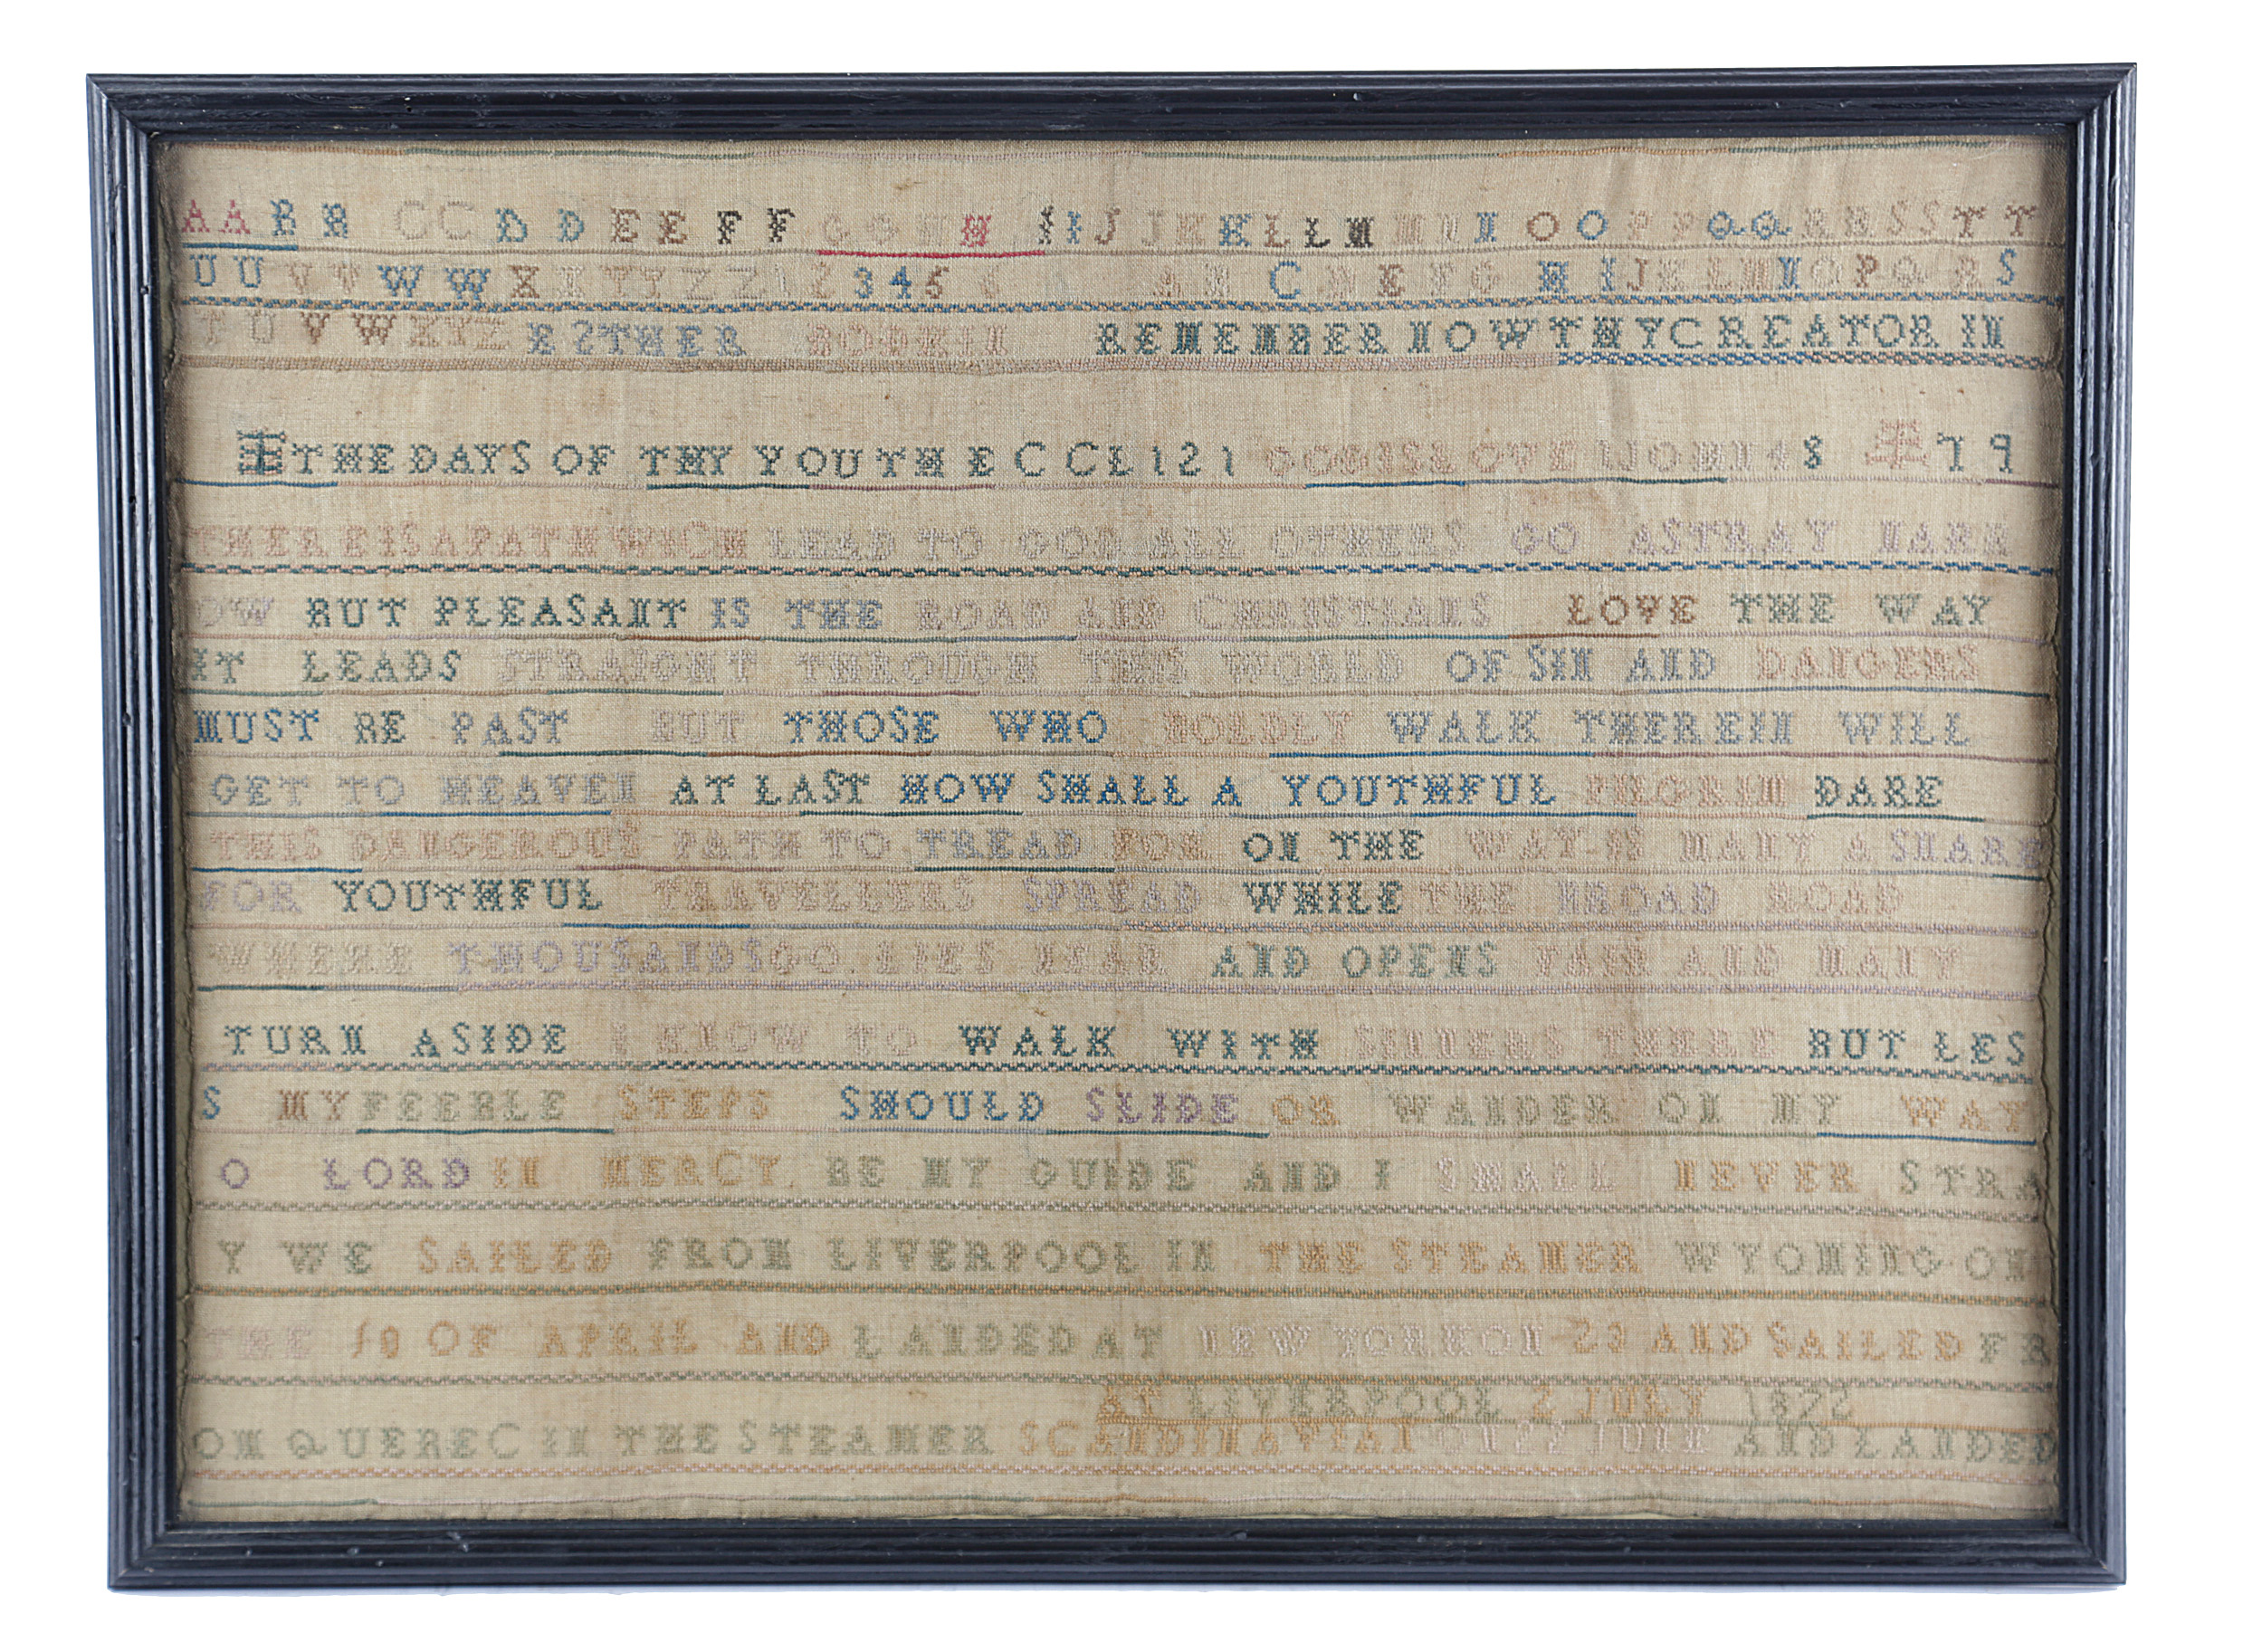 A A B B C C D D E E F F G G H H I I J J K K L L M M N N O O P P Q Q R R S S T T
U U V V W W X X Y Y Z Z 1 2 3 4 5 6 A B C D E F G H I J K L M N O P Q R S
T U V W X Y Z ESTHER BODKIN REMEMBER NOW THY CREATOR IN
THE DAYS OF THY YOUTH ECCL 12 1 GOD IS LOVE 1 JOHN 4 8
THERE IS A PATH WICH LEAD TO GOD ALL OTHERS GO ASTRAY NARR
OW BUT PLEASANT IS THE ROAD AND CHRISTIANS LOVE THE WAY
IT LEADS STRAIGHT THROUGH THIS WORLD OF SIN AND DANGERS
MUST BE PAST BUT THOSE WHO BOLDLY WALK THEREIN WILL
GET TO HEAVEN AT LAST HOW SHALL A YOUTHFUL PILGRIM DARE
THIS DANGEROUS PATH TO TREAD FOR ON THE WAY IS MANY A SNARE
FOR YOUTHFUL TRAVELLERS SPREAD WHILE THE BROAD ROAD
WHERE THOUSANDS GO LIES NEAR AND OPENS FAIR AND MANY
TURN ASIDE I KNOW TO WALK WITH SINNERS THERE BUT LES
S MY FEEBLE STEPS SHOULD SLIDE OR WANDER ON MY WAY
O LORD IN MERCY BE MY GUIDE AND I SHALL NEVER STRA
Y WE SAILED FROM LIVERPOOL IN THE STEAMER WYOMING ON
THE 10 OF APRIL AND LANDED AT NEW YORK ON 23 AND SAILED FR
OM QUEBEC IN THE STEAMER SCANDINAVIAN ON 22 JUNE AND LANDED
AT LIVERPOOL 2 JULY 1872